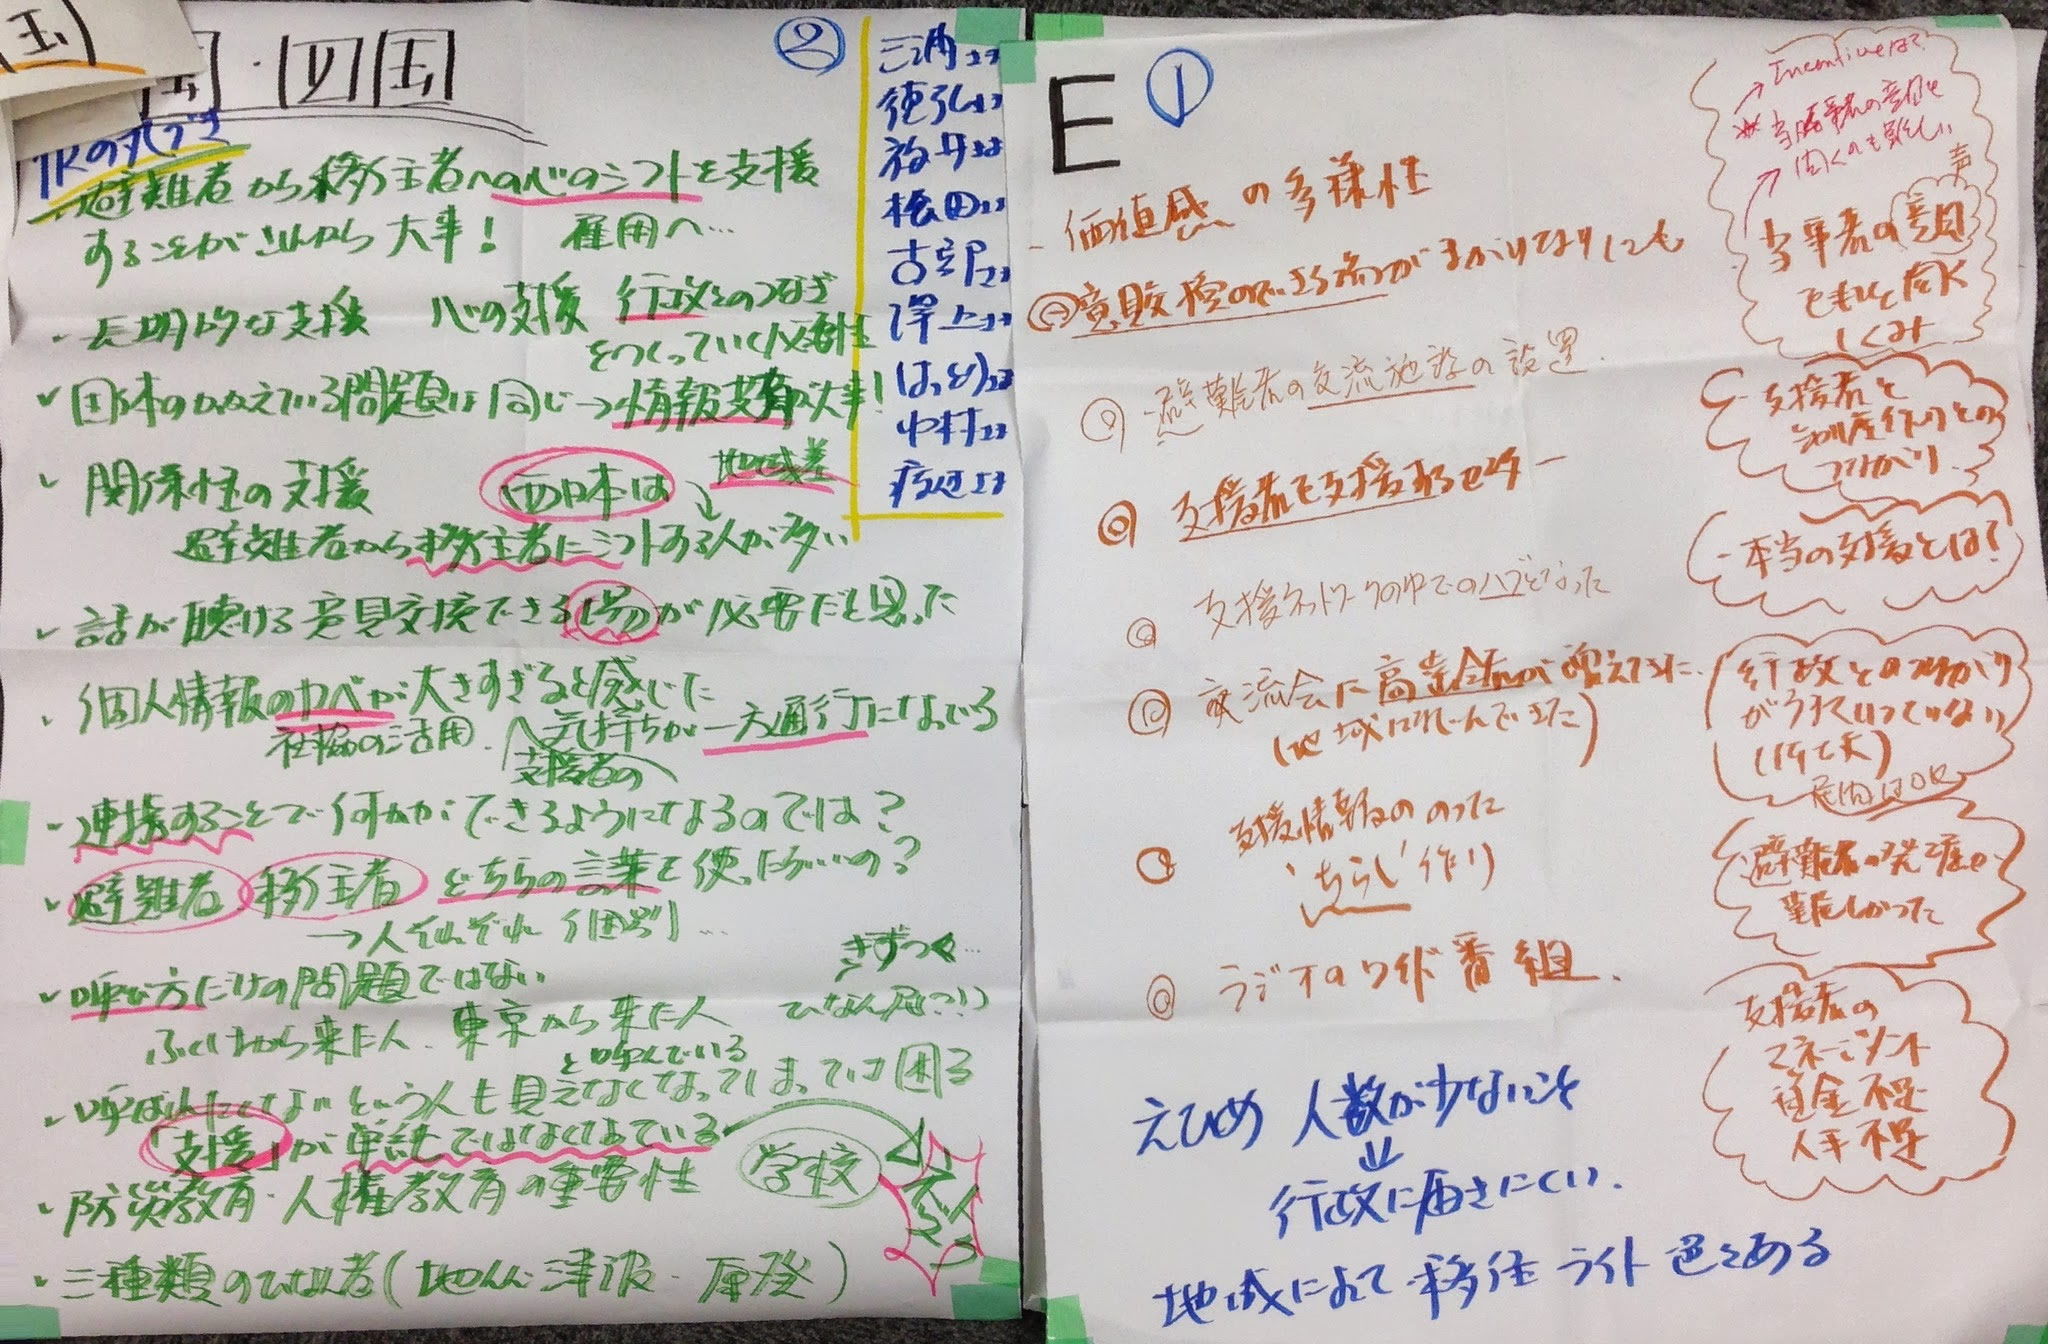 国・四国
②
避難者から移住者への心のシフトを支援
することがこれから大事! 雇用へ…
長期的な支援 心の支援 行政とのつなぎ
をつくっていく必要性
団体のかかえている問題は同じ→情報支援が大事!
関係性の支援 西日本は 地域差
避難者から移住者にシフトする人が多い
話が聴ける意見交換できる場が必要だと思った
個人情報のカベが大きすぎると感じた
社協の活用 気持ちが一方通行になっている
支援者の
連携することで何かができるようになるのでは?
避難者 移住者 どちらの言葉を使ったがいいの?
→人それぞれ 個別…
呼び方だけの問題ではない きずつく…
ふくしまから来た人、東京から来た人
と呼んでいる
呼ばれたくないという人も見えなくなってしまっては困る
「支援」が単純ではなくなっている
防災教育・人権教育の重要性 学校
三種類のひなん者(地しん・津波・原発)
三浦さん
徳弘さん
松田さん
澤上さん
はっとりさん
中村さん
渡辺さん
E ①
価値感の多様性
避難者の交流施設の設置
支援者を支援するセンター
支援ネットワークの中でのハブとなった
交流会に高齢者が増えてきた
(地域に呼んできた)
支援情報ののった
"ちらし"作り
ラジオのワイド番組
えひめ 人数が少ないこそ
⇓
行政に届きにくい.
地域によって移住 ライト 色々ある
Incentiveは?
当事者の意見を
聞くのも難しい
声
当事者の意見
しくみ
支援者と
つながり
本当の支援とは?
行政とのつながり
がうまくいっていない
避難者の発掘が
難しかった
支援者の
マネージメント
資金不足
人手不足